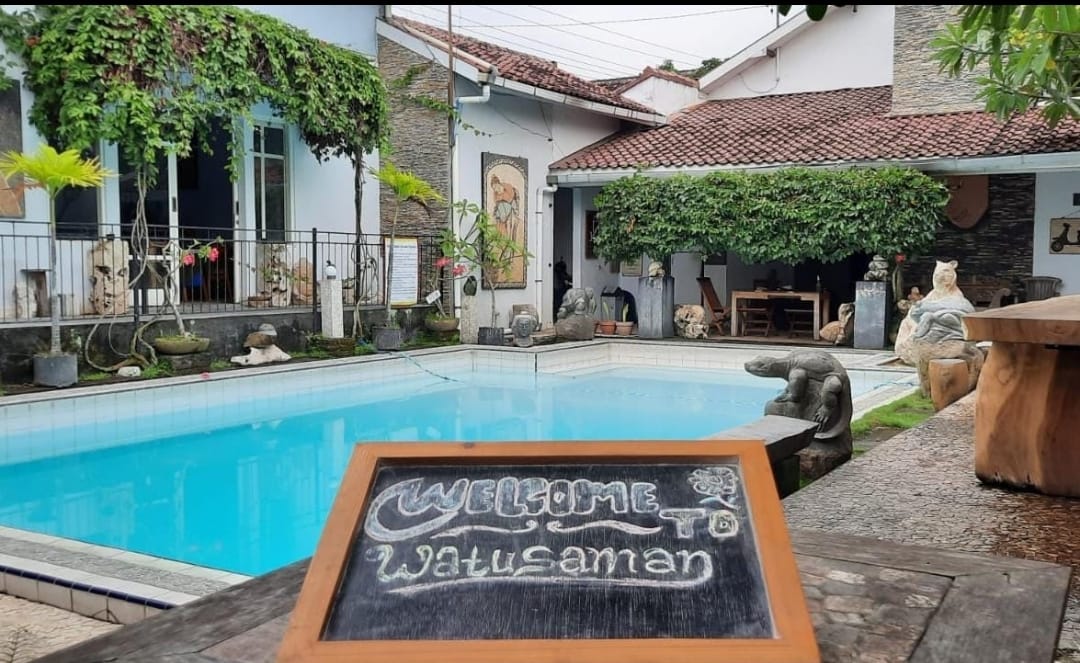 WELCOME
TO
Watusaman